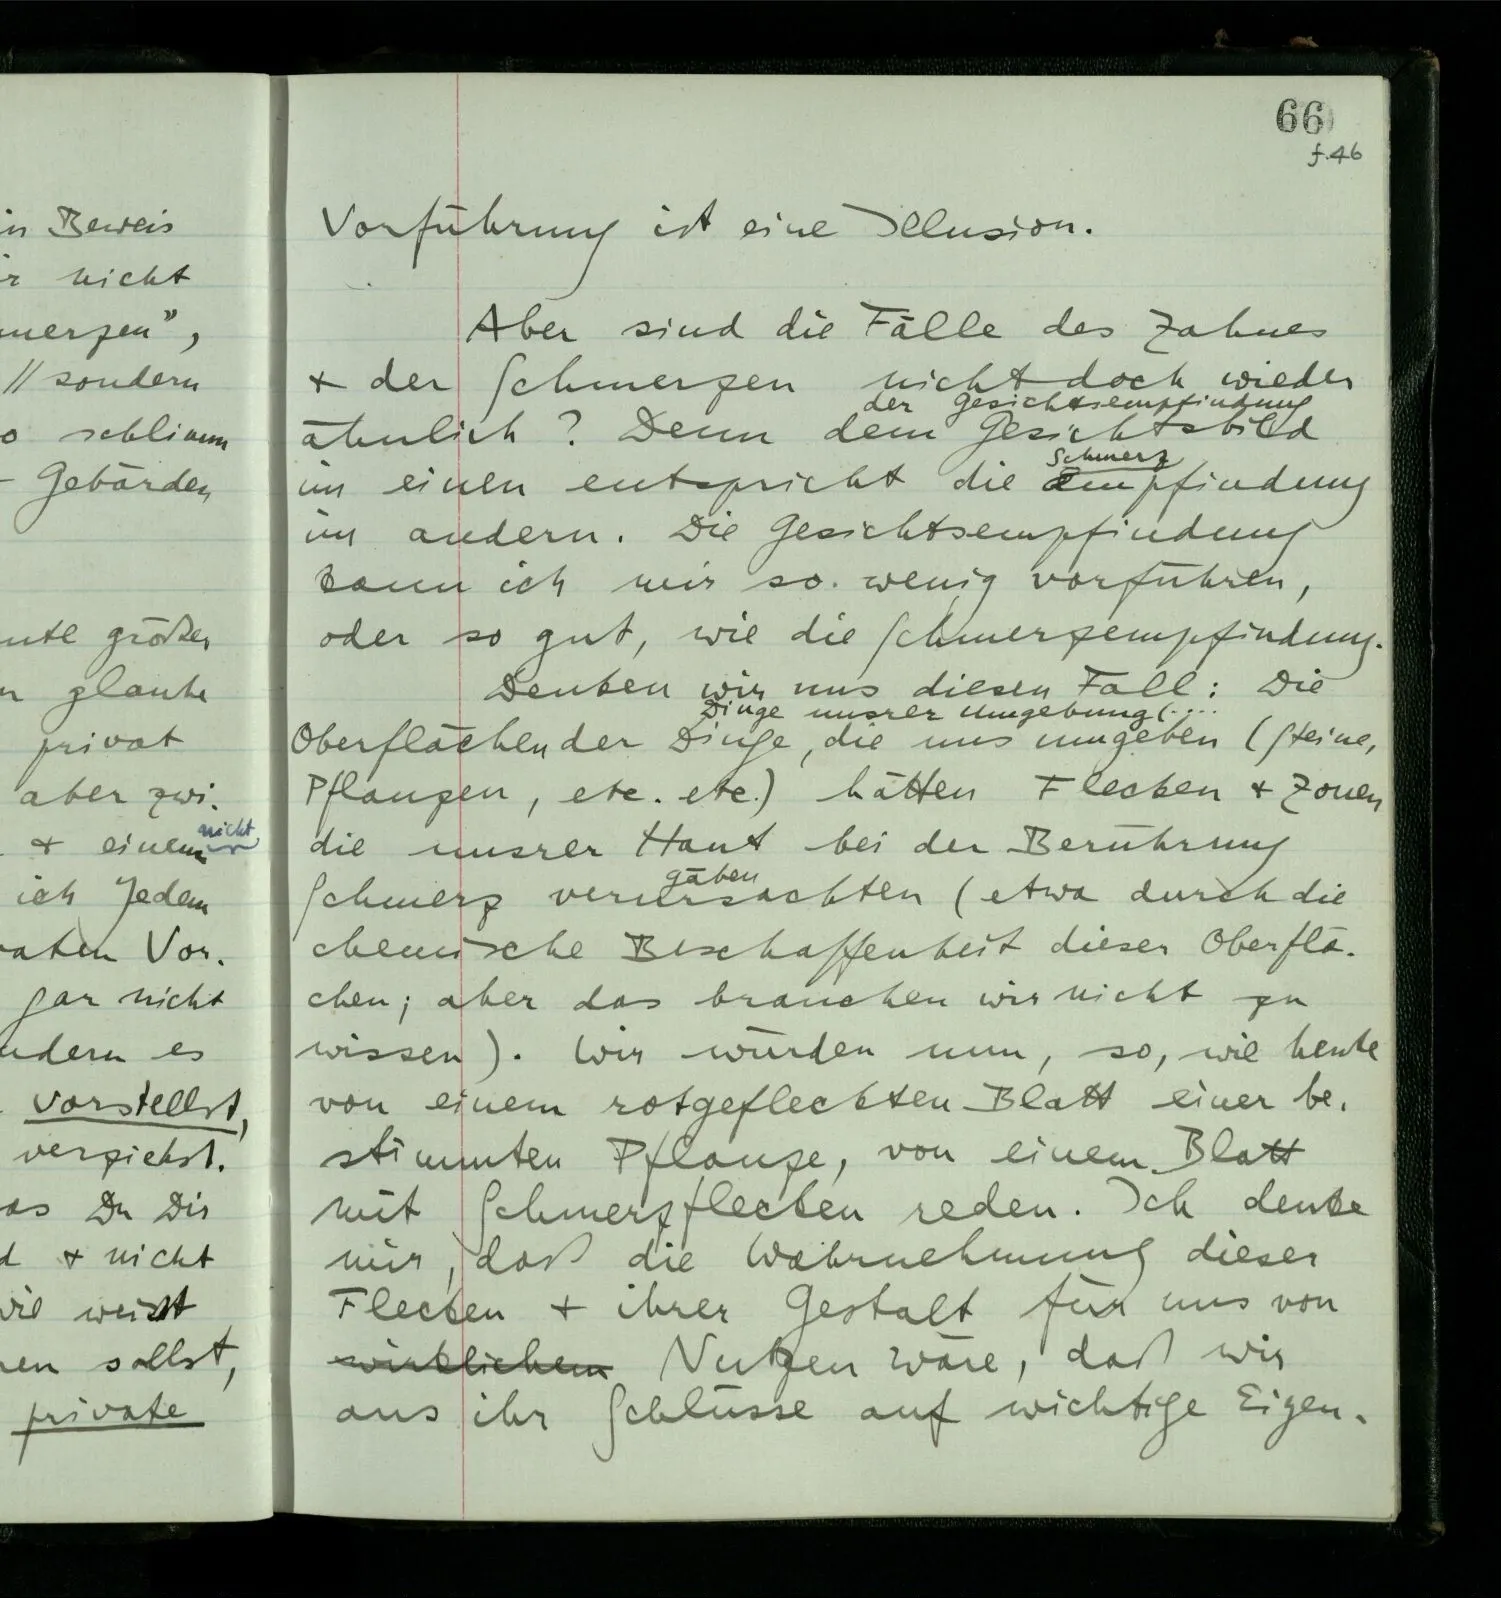 in Beweis
nicht
merzen",
// sondern
so schlimm
– Gebärden
nnte größer
glaube
privat
aber zwi-
nicht
& einem
ich Jedem
vaten Vor-
gar nicht
ndern es
vorstellst,
verziehst.
as Du Dir
d & nicht
wie weißt
sollst,
private
66
f.46
Vorführung ist eine Illusion.
Aber sind die Fälle des Zahnes
& der Schmerzen nicht doch wieder
der Gesichtsempfindung
ähnlich? Denn dem Gesichtsbild
Schmerz
im einen entspricht die Empfindung
im andern. Die Gesichtsempfindung
kann ich mir so wenig vorführen,
oder so gut, wie die Schmerzempfindung.
Denken wir uns diesen Fall: Die
Dinge unsrer Umgebung (....
Oberflächen der Dinge, die uns umgeben (Steine,
Pflanzen, etc. etc.) hätten Flecken & Zonen
die unsrer Haut bei der Berührung
gäben
Schmerz verursachten (etwa durch die
chemische Beschaffenheit dieser Oberflä-
chen; aber das brauchen wir nicht zu
wissen). Wir würden nun, so, wie heute
von einem rotgefleckten Blatt einer be-
stimmten Pflanze, von einem Blatt
mit Schmerzflecken reden. Ich denke
mir, daß die Wahrnehmung dieser
Flecken & ihrer Gestalt für uns von
wirklichem Nutzen wäre, daß wir
aus ihr Schlüsse auf wichtige Eigen-